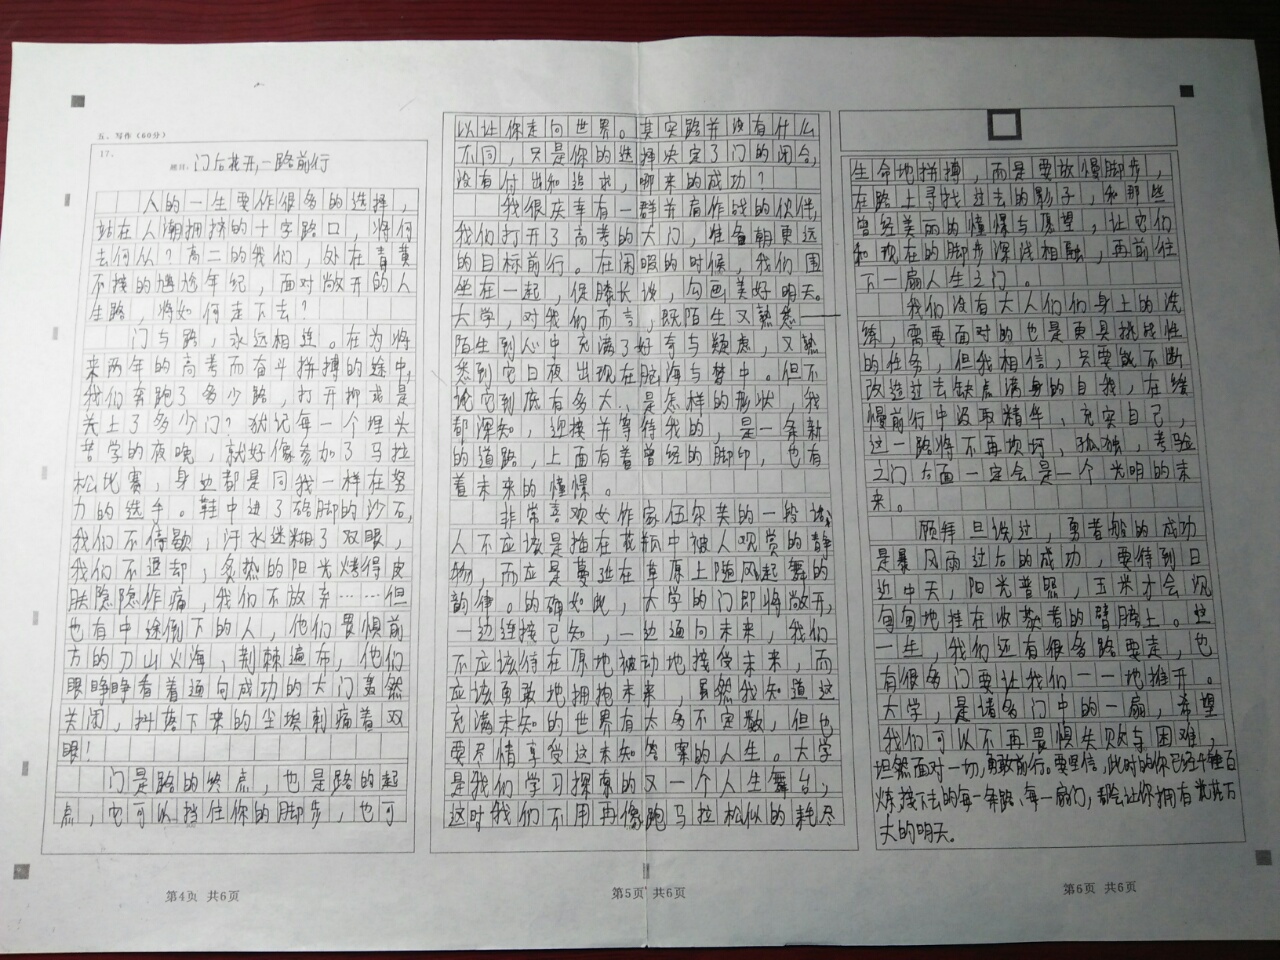 五、写作(60分)
17.
题目:门后花开,一路前行
人的一生要作很多的选择,
站在人潮拥挤的十字路口,将何
去何从?高二的我们,处在青黄
不接的尴尬年纪,面对敞开的人
生路,将如何走下去?
门与路,永远相连。在为将
来两年的高考而奋斗拼搏的途中,
我们奔跑了多少路,打开抑或是
关上了多少门?犹记每一个埋头
苦学的夜晚,就好像参加了马拉
松比赛,身边都是同我一样在努
力的选手。鞋中进了硌脚的沙石,
我们不停歇,汗水迷糊了双眼,
我们不退却,炙热的阳光烤得皮
肤隐隐作痛,我们不放弃……但
也有中途倒下的人,他们畏惧前
方的刀山火海,荆棘遍布,他们
眼睁睁看着通向成功的大门轰然
关闭,抖落下来的尘埃刺痛着双
眼!
门是路的终点,也是路的起
点,它可以挡住你的脚步,也可
以让你走向世界。其实路并没有什么
不同,只是你的选择决定了门的闭合,
没有付出和追求,哪来的成功?
我很庆幸有一群并肩作战的伙伴,
我们打开了高考的大门,准备朝更远
的目标前行。在闲暇的时候,我们围
坐在一起,促膝长谈,勾画美好明天。
大学,对我们而言,既陌生又熟悉——
陌生到心中充满了好奇与疑虑,又熟
悉到它日夜出现在脑海与梦中。但不
论它到底有多大,是怎样的形状,我
都深知,迎接并等待我的,是一条新
的道路,上面有着曾经的脚印,也有
着未来的憧憬。
非常喜欢女作家伍尔芙的一段话:
人不应该是插在花瓶中被人观赏的静
物,而应是蔓延在草原上随风起舞的
韵律。的确如此,大学的门即将敞开,
一边连接已知,一边通向未来,我们
不应该待在原地被动地接受未来,而
应该勇敢地拥抱未来,虽然我知道这
充满未知的世界有太多不定数,但也
要尽情享受这未知答案的人生。大学
是我们学习探索的又一个人生舞台,
这时我们不用再像跑马拉松似的耗尽
生命地拼搏,而是要放慢脚步,
在路上寻找过去的影子,和那些
曾经美丽的憧憬与愿望,让它们
和现在的脚步深浅相融,再前往
下一扇人生之门。
我们没有大人们们身上的洗
练,需要面对的也是更具挑战性
的任务,但我相信,只要能不断
改造过去缺点满身的自我,在缓
慢前行中汲取精华、充实自己,
这一路将不再坎坷,孤独,考验
之门后面一定会是一个光明的未
来。
顾拜旦说过,勇者般的成功
是暴风雨过后的成功,要待到日
近中天,阳光普照,玉米才会沉
甸甸地挂在收获者的臂膀上。这
一生,我们还有很多路要走,也
有很多门要让我们一一地推开。
大学,是诸多门中的一扇,希望
我们可以不再畏惧失败与困难,
坦然面对一切,勇敢前行。要坚信,此时的你已经千锤百
炼,接下去的每一条路、每一扇门,都会让你拥有光芒万
丈的明天。
第4页 共6页
第5页 共6页
第6页 共6页